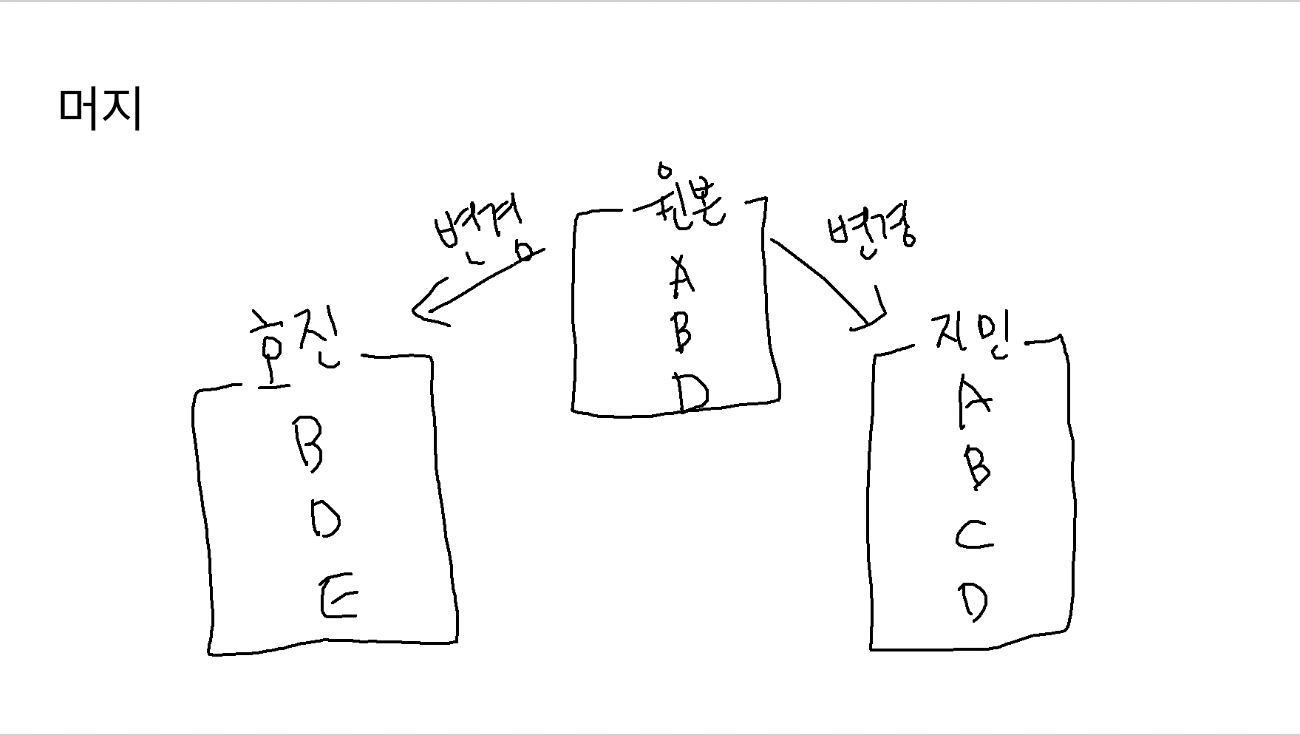 머지
원본
A
B
D
변경
변경
효진
B
D
E
지민
A
B
C
D